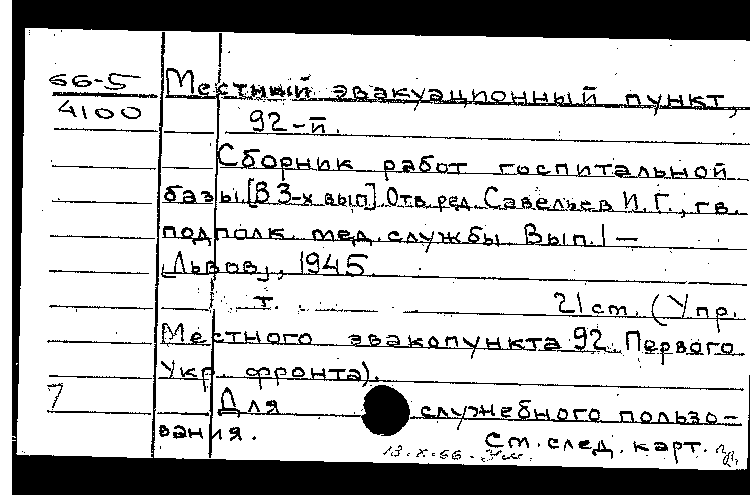 66-5 Местный эвакуационный пункт,
4100 92-й.
Сборник работ госпитальной
базы. [В 3-х вып] Отв. ред. Савельев И. Г., гв.
подполк. мед. службы. Вып. 1 —
[Львов], 1945.
т. 21 см. (Упр.
Местного эвакопункта 92. Первого
Укр. фронта).
7 Для служебного пользо-
вания.
См. след. карт.
13.X.66.